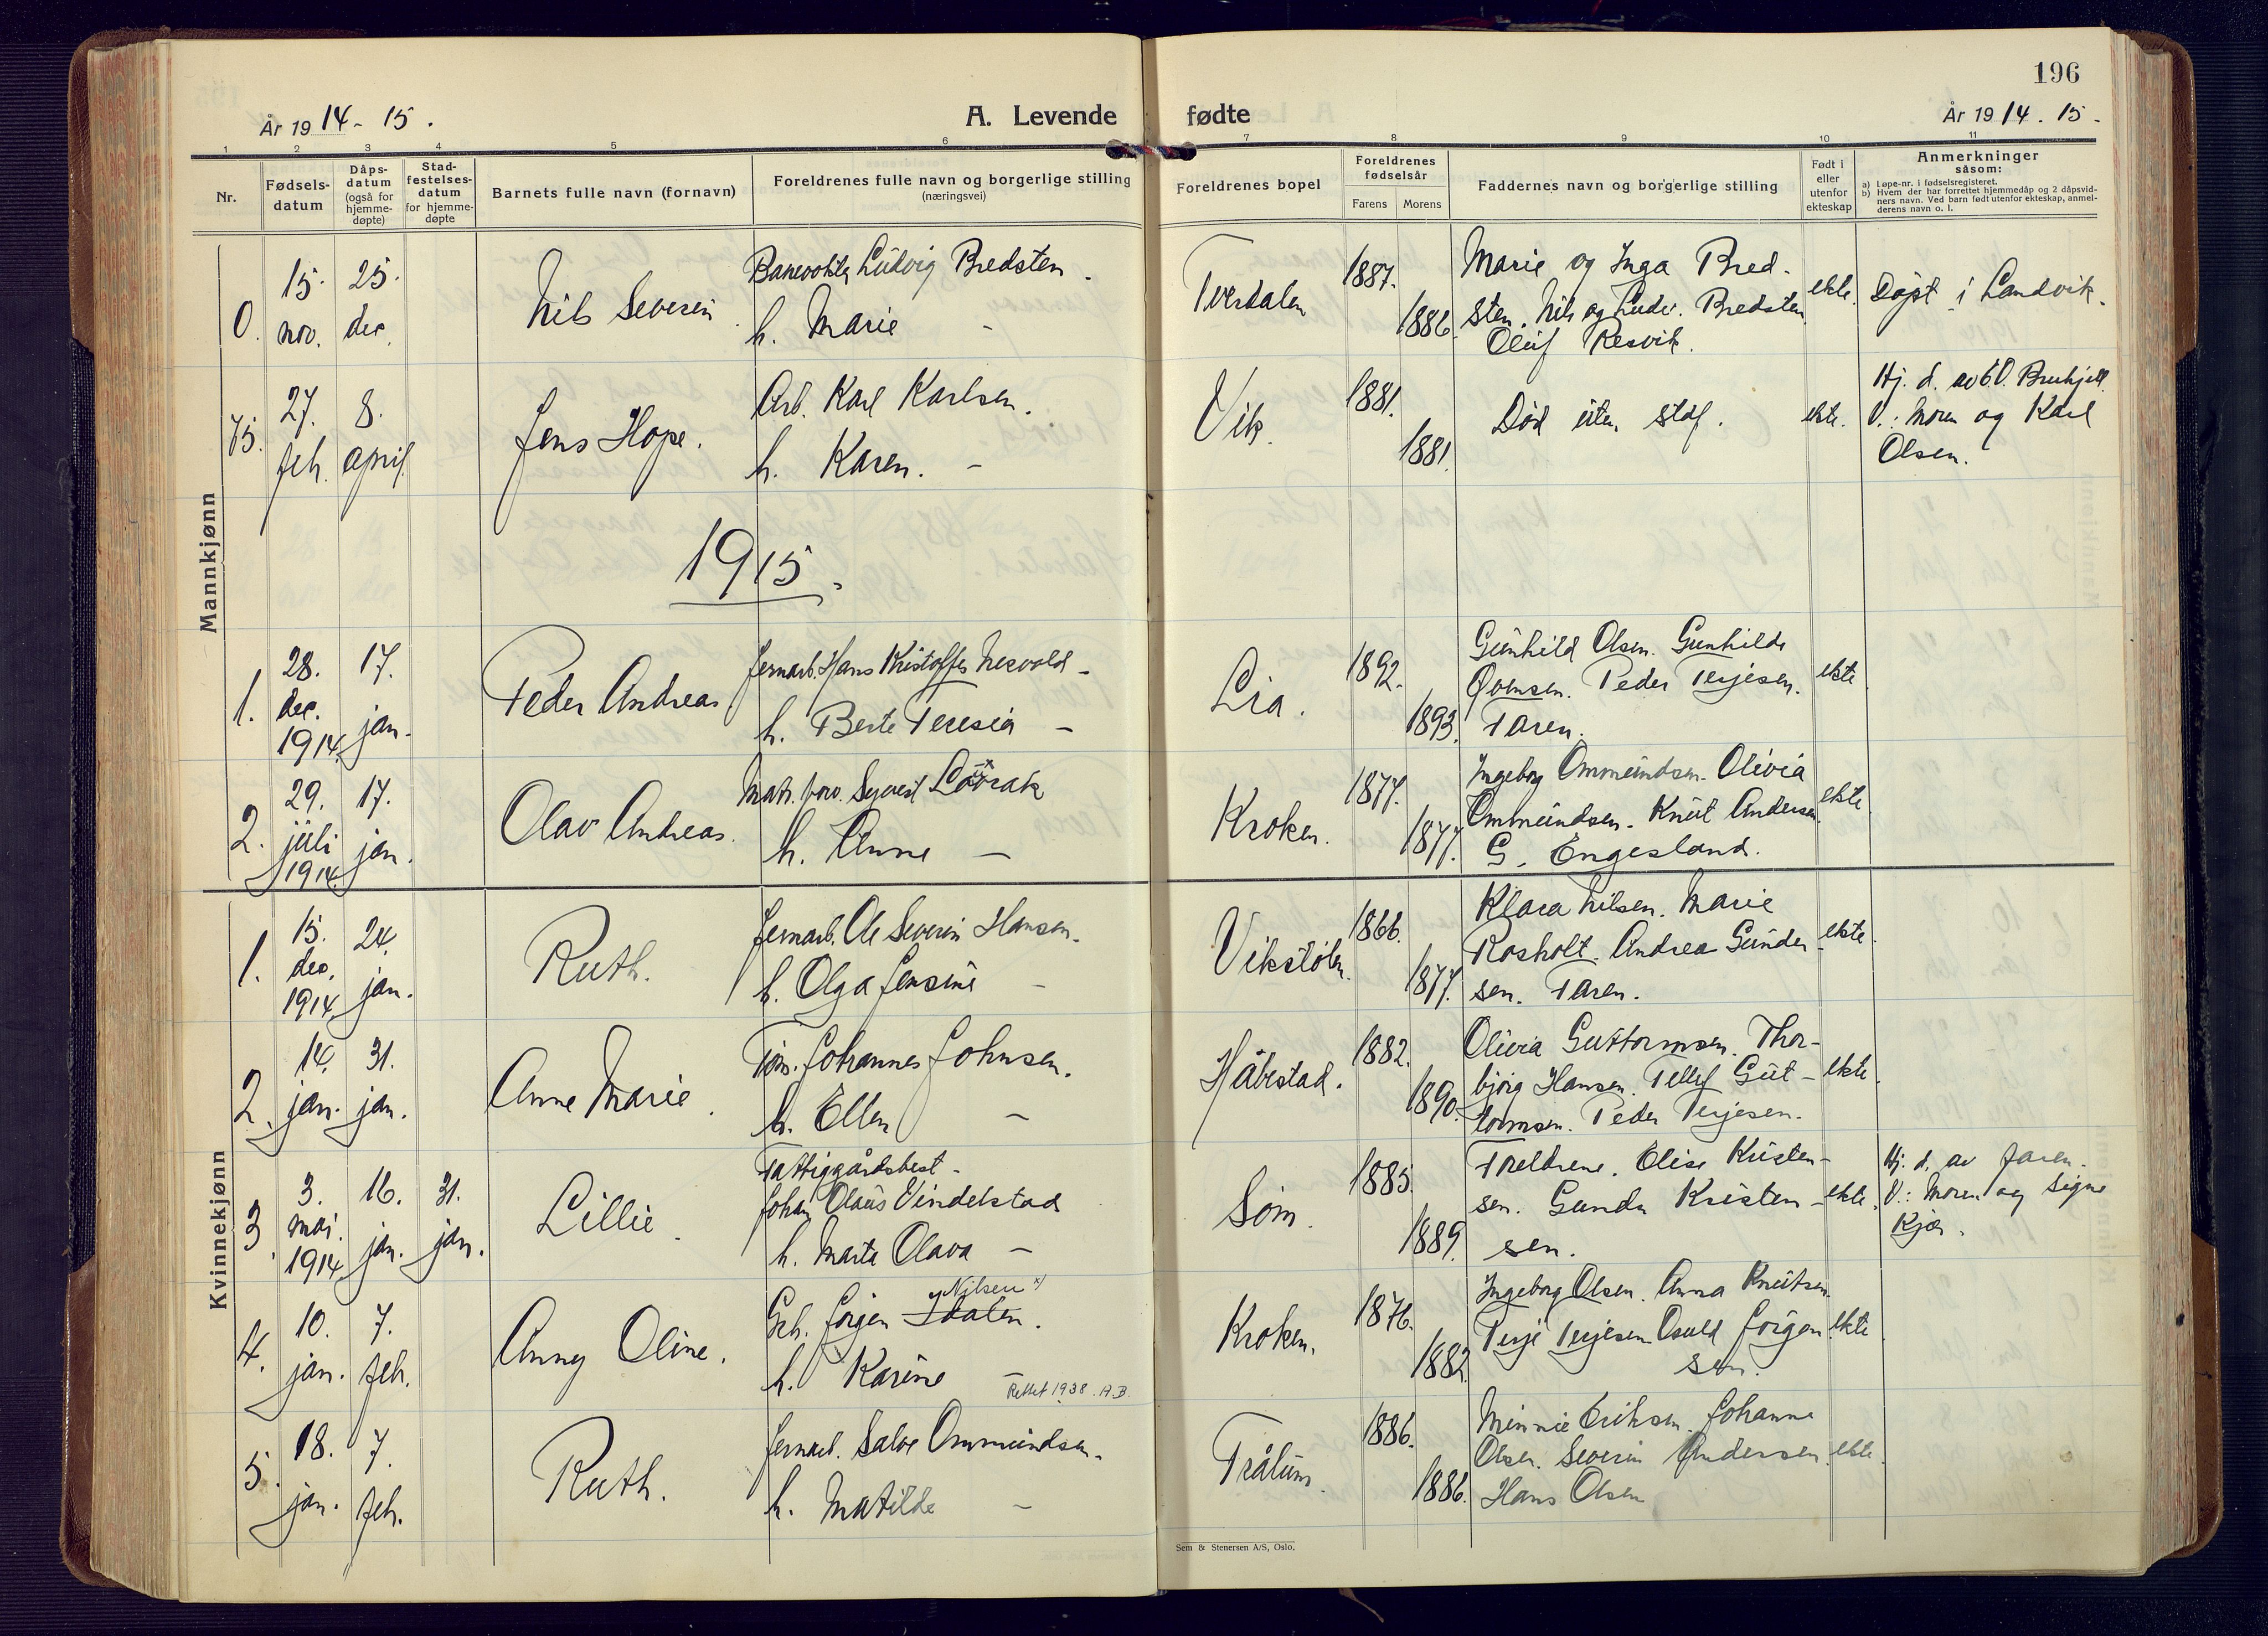 196
År 1914 - 15.
A. Levende fødte
År 1914. 15.
1 2 3 4 5 6 7 8 9 10 11
Nr.
Fødsels-
datum
Dåps-
datum
(også for
hjemme-
døpte)
Stad-
festelses-
datum
for hjemme-
døpte
Barnets fulle navn (fornavn)
Foreldrenes fulle navn og borgerlige stilling
(næringsvei)
Foreldrenes bopel
Foreldrenes
fødselsår
Farens Morens
Faddernes navn og borgerlige stilling
Født i
eller
utenfor
ekteskap
Anmerkninger
såsom:
a) Løpe-nr. i fødselsregisteret.
b) Hvem der har forrettet hjemmedåp og 2 dåpsvid-
ners navn. Ved barn født utenfor ekteskap, anmel-
derens navn o. l.
Mannkjønn
0. 15. nov. 25. dec.
Nils Severin
Ludvig Bredsten.
h. Marie -
Tverdalen
1887.
1886.
Marie og Inga Bred-
sten. Nils og Ludv. Bredsten
Oluf Resvik.
ekte.
Døpt i Landvik.
15. 27. feb. 8. april
Jens Hope.
Arb. Karl Karlsen.
h. Karen. -
Vik.
1881.
1881.
Død uten stdf.
ekte.
Hj. d. av
V.: Moren og Karl
Olsen.
1915.
1. 28. dec. 1914 17. jan.
Peder Andreas
Jernarb. Hans Kristoffer Nesvold -
h. Berte Teresia -
Lia.
1892.
1893.
Gunhild Olsen. Gunhilde
Peder Terjesen.
Faren.
ekte
2. 29. juli 1914 17. jan.
Olav Andreas.
h. Anne -
Kroken.
1877.
1877.
Ingeborg Ommundsen. Olivia
Ommundsen. Knut Andersen
G. Engesland.
ekte
Kvinnekjønn
1. 15. dec. 1914 24. jan.
Ruth.
Jernarb. Ole Severin Hansen.
h. Olga Jensine -
Vikstølen.
1866.
1877.
Klara Nilsen. Marie
Rosholt. Andrea Gunder-
sen. Faren.
ekte.
2. 14. jan. 31. jan.
Anne Marie.
Tøm. Johannes Johnsen.
h. Ellen -
Håbestad.
1882.
1890.
Olivia Guttormsen. Thor-
bjørg Hansen. Tellef Gut-
tormsen. Peder Terjesen.
ekte.
3. 3. mai 1914 16. jan. 31. jan.
Lillie.
Fattiggårdsbest.
Johan Olaus Vindelstad
h. Marta Olava -
Søm.
1885.
1889.
Foreldrene. Elise Kristen-
sen. Gunda Kristen-
sen.
ekte.
Hj. d. av faren.
V.: Moren og Signe
Kjær.
4. 10. jan. 7. feb.
Anny Oline.
Nilsen x)
Gb. Jørgen Ydalen.
h. Karine -
Rettet 1938. A.B.
Kroken.
1876.
1882.
Ingeborg Olsen. Anna Knutsen.
Terje Terjesen. Osuld Jørgen-
sen.
ekte
5. 18. jan. 7. feb.
Ruth.
Jernarb. Salve Ommundsen.
h. Matilde -
Trålum.
1886.
1886.
Minnie Eriksen. Johanne
Olsen. Severin Andersen.
Hans Olsen
ekte.
Sem & Stenersen A/S, Oslo.